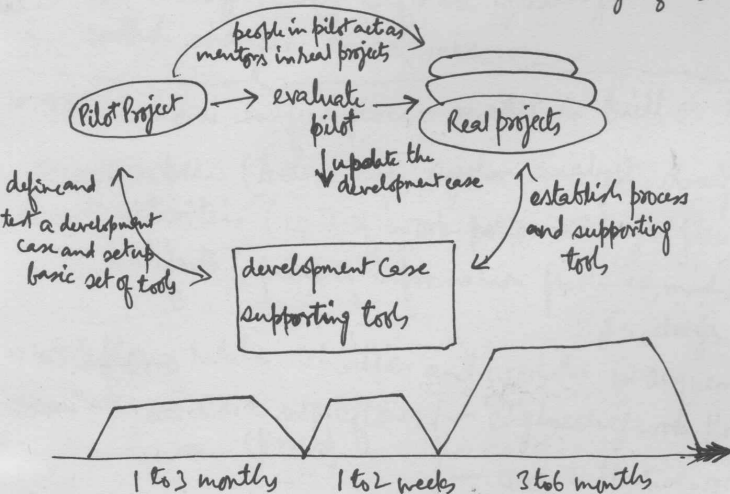 people in pilot act as
mentors in real projects
Pilot Project
evaluate
pilot
Real projects
update the
development case
define and
test a development
case and setup
basic set of tools
establish process
and supporting
tools
development Case
supporting tools
1 to 3 months
1 to 2 weeks
3 to 6 months